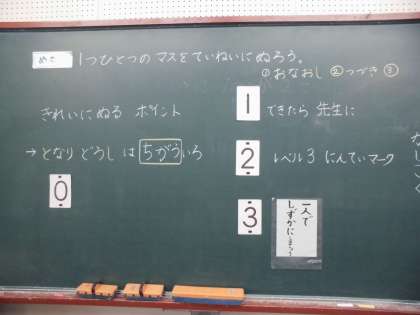 めあて
1つひとつの マスをていねいにぬろう。
のあなおし ②つづき ③
きれいにぬる ポイント
→ となり どうし は ちがう いろ
0
1 できたら 先生に
2 レベル3 にんていマーク
3
一人で
しずかに